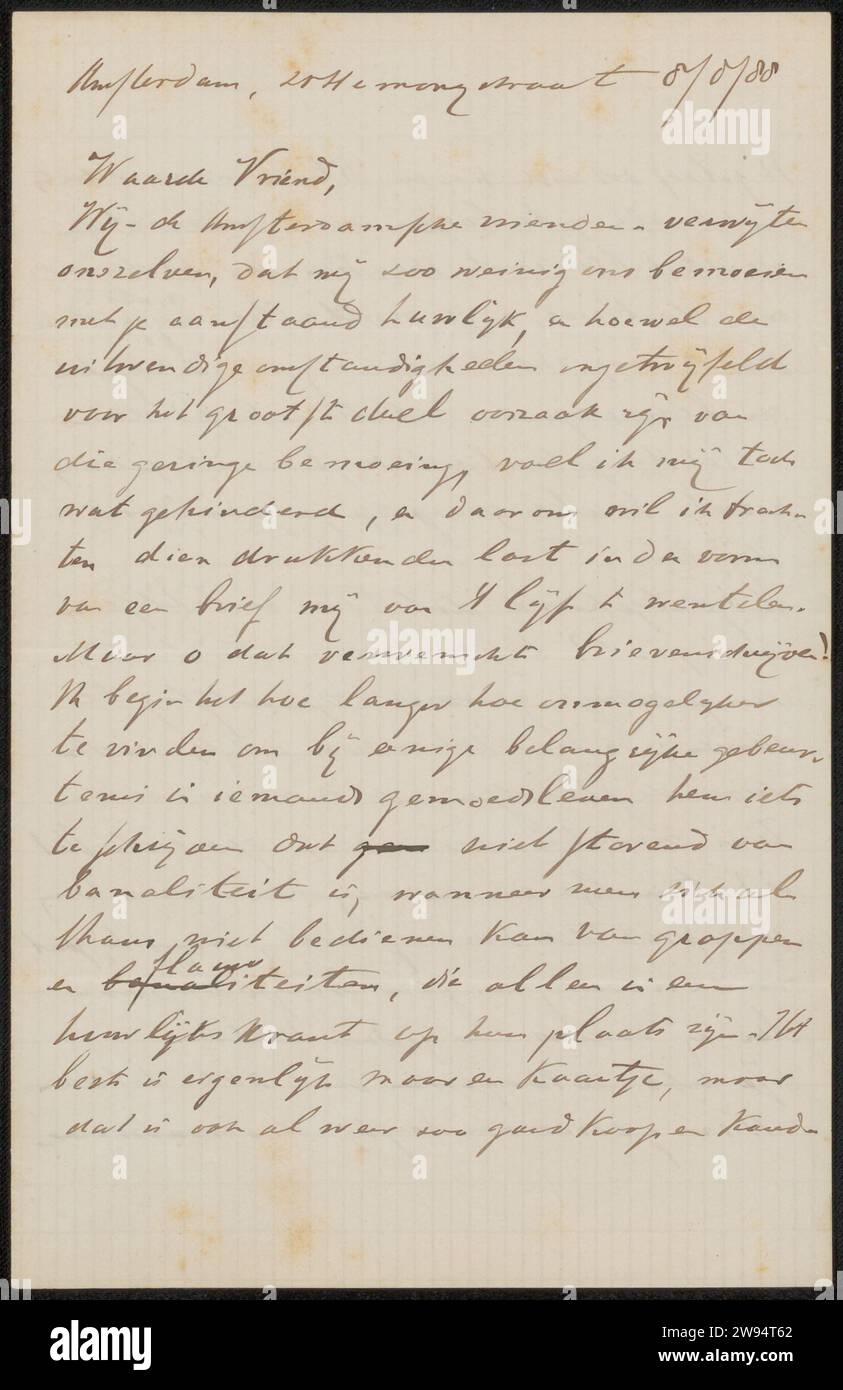 Amsterdam, 20 Hemonystraat 8/8/88
Waarde Vriend,
Wij - de Amsterdamsche vrienden - verwijten
onszelven, dat wij zoo weinig ons bemoeien
met je aanstaand huwlijk, en hoewel de
uitwendige omstandigheden ongetwijfeld
voor het grootste deel oorzaak zijn van
die geringe bemoeiing, voel ik mij toch
wat gehinderd, en daarom wil ik trach-
ten dien drukkenden last in den vorm
van een brief mij van 't lijf te wentelen.
Maar o dat verwenschte brievenschrijven!
Ik begin het hoe langer hoe onmogelijker
te vinden om bij eenige belangrijke gebeur-
tenis in iemands gemoedsleven hem iets
te schrijven dat niet storend van
banaliteit is, wanneer men zich al
thans niet bedienen kan van grappen
en flauwiteiten, die alleen in een
huwlijkskrant op hun plaats zijn. Het
beste is eigenlijk maar een kaartje, maar
dat is ook al weer zoo goedkoop en koud
alamy
Image ID: 2W94T62
www.alamy.com